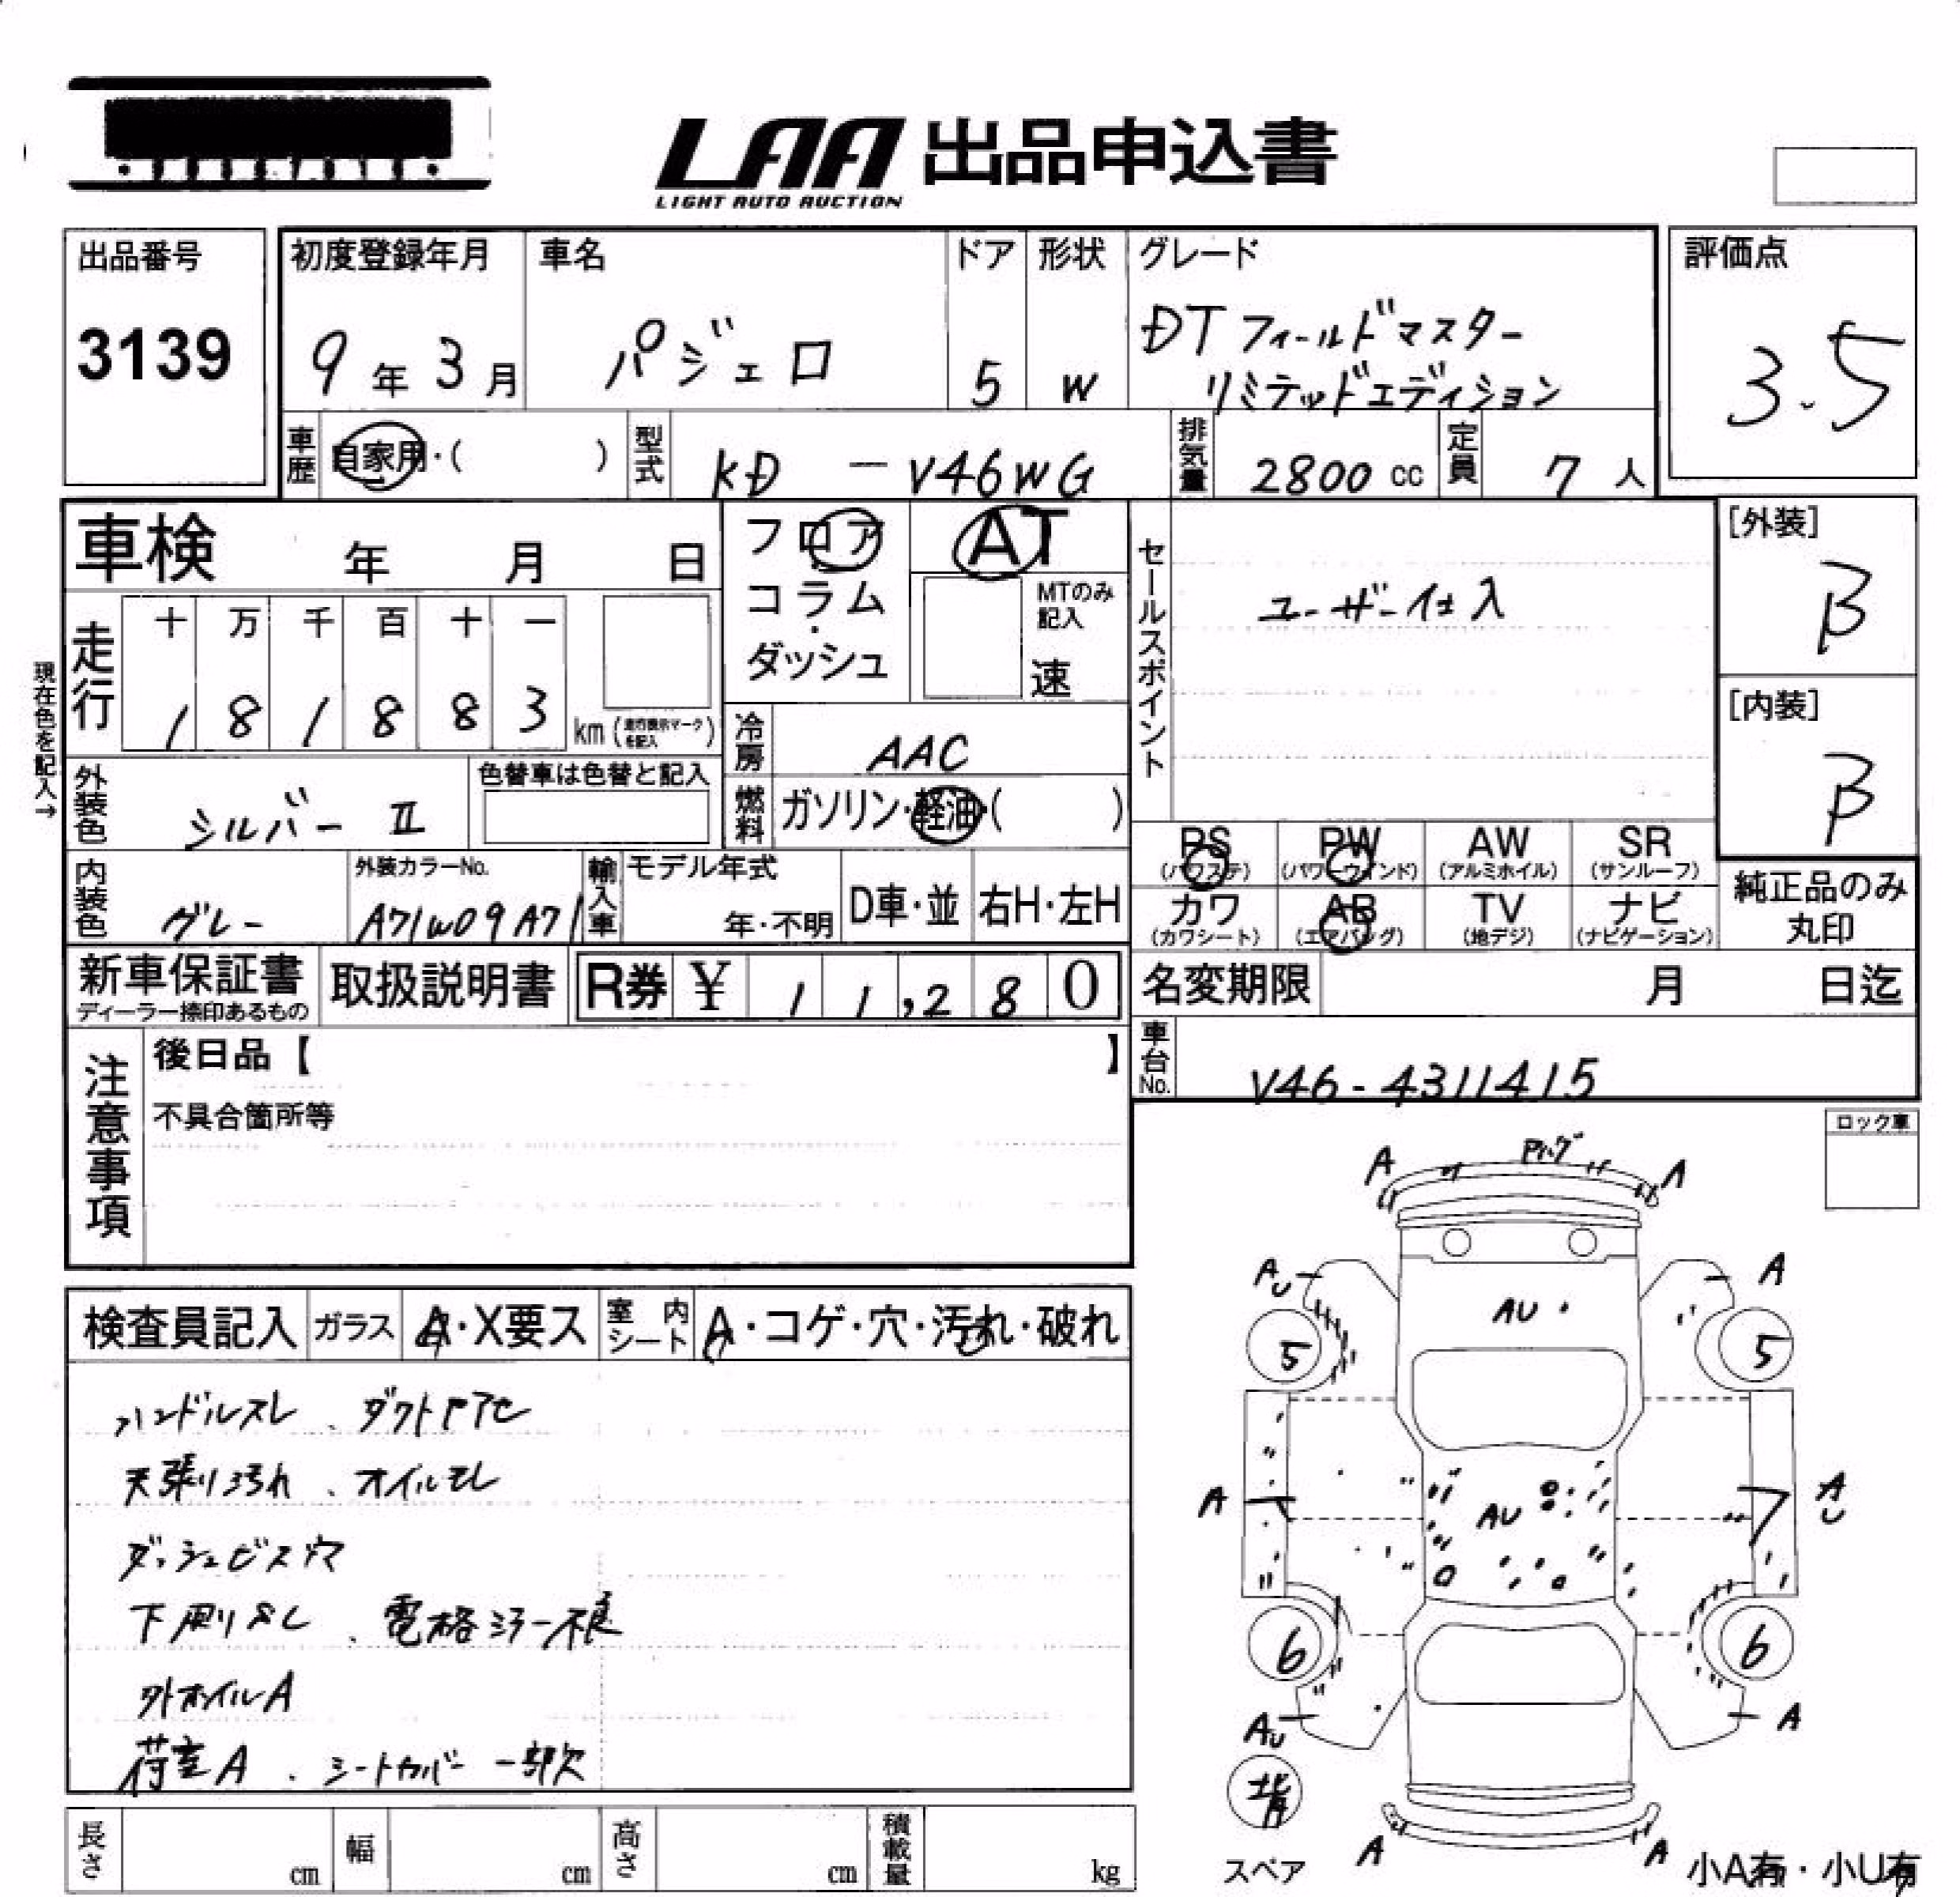 LAA 出品申込書
LIGHT AUTO AUCTION
出品番号
3139
初度登録年月
9年3月
車名
パジェロ
ドア
5
形状
W
グレード
DTフィールドマスター
リミテッドエディション
評価点
3.5
車歴
自家用・( )
型式
KD － V46WG
排気量
2800 cc
定員
7 人
車検 年 月 日
フロア
コラム
・
ダッシュ
AT
MTのみ
記入
速
セールスポイント
ユーザー仕入
[外装]
β
[内装]
β
現在色を記入→
走行
十 万 千 百 十 一
1 8 1 8 8 3
km(走行表示マークを記入)
冷房
AAC
燃料
ガソリン・軽油・( )
外装色
シルバー Ⅱ
色替車は色替と記入
PS
(パワステ)
PW
(パワーウインド)
AW
(アルミホイル)
SR
(サンルーフ)
カワ
(カワシート)
AB
(エアバッグ)
TV
(地デジ)
ナビ
(ナビゲーション)
純正品のみ
丸印
内装色
グレー
外装カラーNo.
A71W09A71
輸入車
モデル年式
年・不明
D車・並
右H・左H
新車保証書
ディーラー捺印あるもの
取扱説明書
R券 ¥ 1 1,2 8 0
名変期限 月 日迄
車台No.
V46-4311415
注意事項
後日品【 】
不具合箇所等
ロック車
検査員記入
ガラス
A・X要ス
室内シート
A・コゲ・穴・汚れ・破れ
ハンドルスレ、ダクト
天張り汚れ、オイルモレ
ダッシュビス穴
下廻りサビ、電格ミラー不良
外ホイルA
荷室A、シートカバー一部欠
A A
AU A
AU
5 5
A AU
AU
6 6
AU A
背
スペア
A A
小A有・小U有
長さ cm
幅 cm
高さ cm
積載量 kg